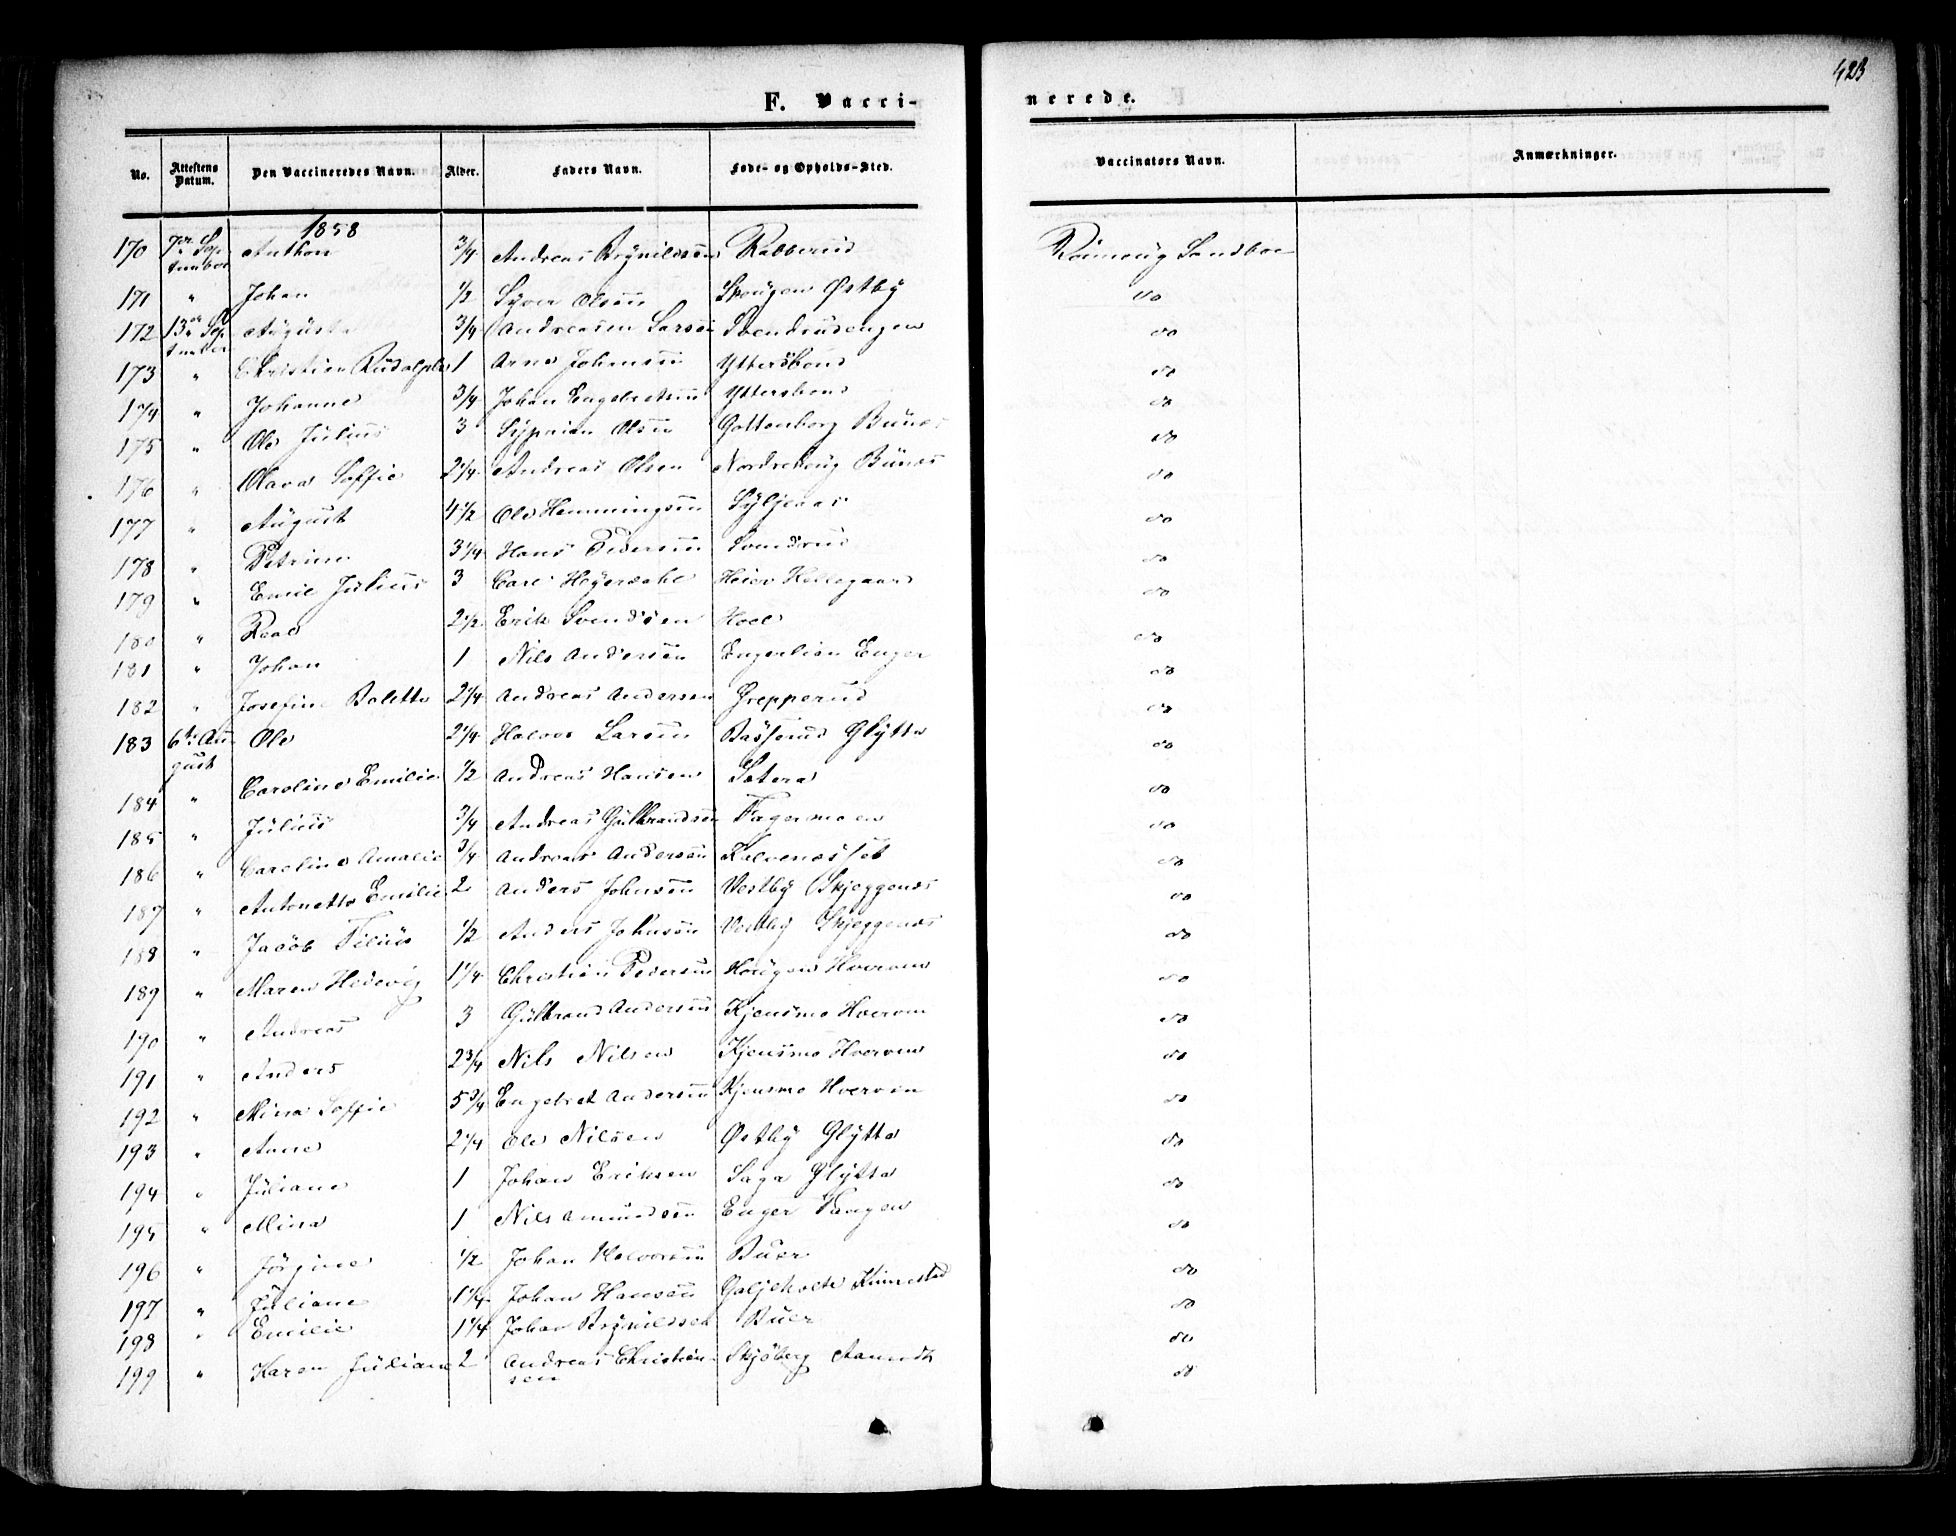 423
F. Vacci-
nerede.
No. Attestens Datum. Den Vaccineredes Navn. Alder. Faders Navn. Føde- og Opholds-Sted. Vaccinators Navn. Anmærkninger.
1858
170 7de September Anthon 3/4 Andreas Brynildsen Rabberud Sandboe
171 " Johan 1/2 Syver Olsen Skougen Østby do
172 13de September August 3/4 Andreasen Larsen Svendrudengen do
173 " Christian Rudolph 1 Arne Johnsen Ytterskoug do
174 " Johanne 3/4 Johan Engebretsen do
175 " Ole Julius 3 Olsen Gottenborg Bunæs do
176 " Olava Soffie 2 1/4 Andreas Olsen Nordrehoug Bunæs do
177 " August 4 1/2 Ole Hemmingsen do
178 " Petrine 3 1/4 Hans Pedersen Svendrud do
179 " Emil Julius 3 Carl Heyerdahl do
180 " 2 1/2 Erik Svendsen Hoel do
181 " Johan 1 Nils Andersen Engerlien Enger do
182 " Josefine Bolette 2 1/4 Andreas Andersen Grepperud do
183 6te August Ole 2 1/4 Halvor Larsen Basserud Glytte do
184 " Caroline Emilie 1/2 Andreas Hansen do
185 " Julius 3/4 Andreas Gulbrandsen Fagermoen do
186 " Caroline Amalie 3/4 Andreas Andersen do
187 " Antonette Emilie 2 Anders Johnsen Vestby Skjeggenæs do
188 " Jacob 1/2 Anders Johnsen Vestby Skjeggenæs do
189 " Maren Hedevig 1 1/4 Christian Pedersen Hougen Hverven do
190 " Andreas 3 Gulbrand Andersen Kjensmo Hverven do
191 " Anders 2 3/4 Nils Nilsen Kjensmo Hverven do
192 " Mina Soffie 5 3/4 Engebret Andersen Kjensmo Hverven do
193 " Anne 2 1/4 Ole Nilsen Østby Glytte do
194 " Juliane 1 Johan Eriksen Saga Glytte do
195 " Mina 1 Nils Amundsen Enger Tangen do
196 " Jørgine 1/2 Johan Halvorsen Buer do
197 " Juliane 1 1/4 Johan Hansen do
198 " Emilie 1 1/4 Johan Brynildsen Buer do
199 " Karen Juliane 2 Andreas Christiansen Skjøberg do